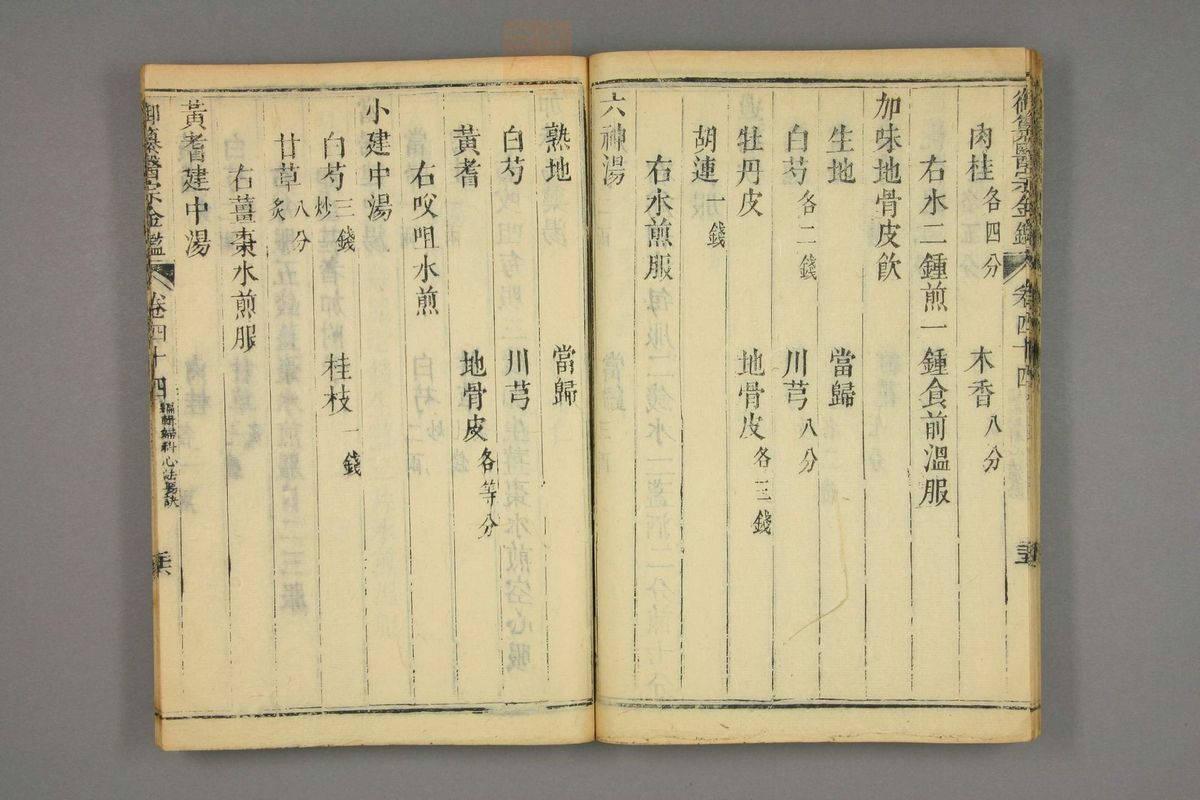 御纂醫宗金鑑 卷四十四
肉桂各四分 木香八分
右水二鍾煎一鍾食前溫服
加味地骨皮飲
生地 當歸
白芍各二錢 川芎八分
牡丹皮 地骨皮各三錢
胡連一錢
右水煎服
六神湯
熟地 當歸
白芍 川芎
黃耆 地骨皮各等分
右㕮咀水煎
小建中湯
白芍三錢炒 桂枝一錢
甘草八分炙
右薑棗水煎服
黃耆建中湯
御纂醫宗金鑑 卷四十四 編輯婦科心法要訣